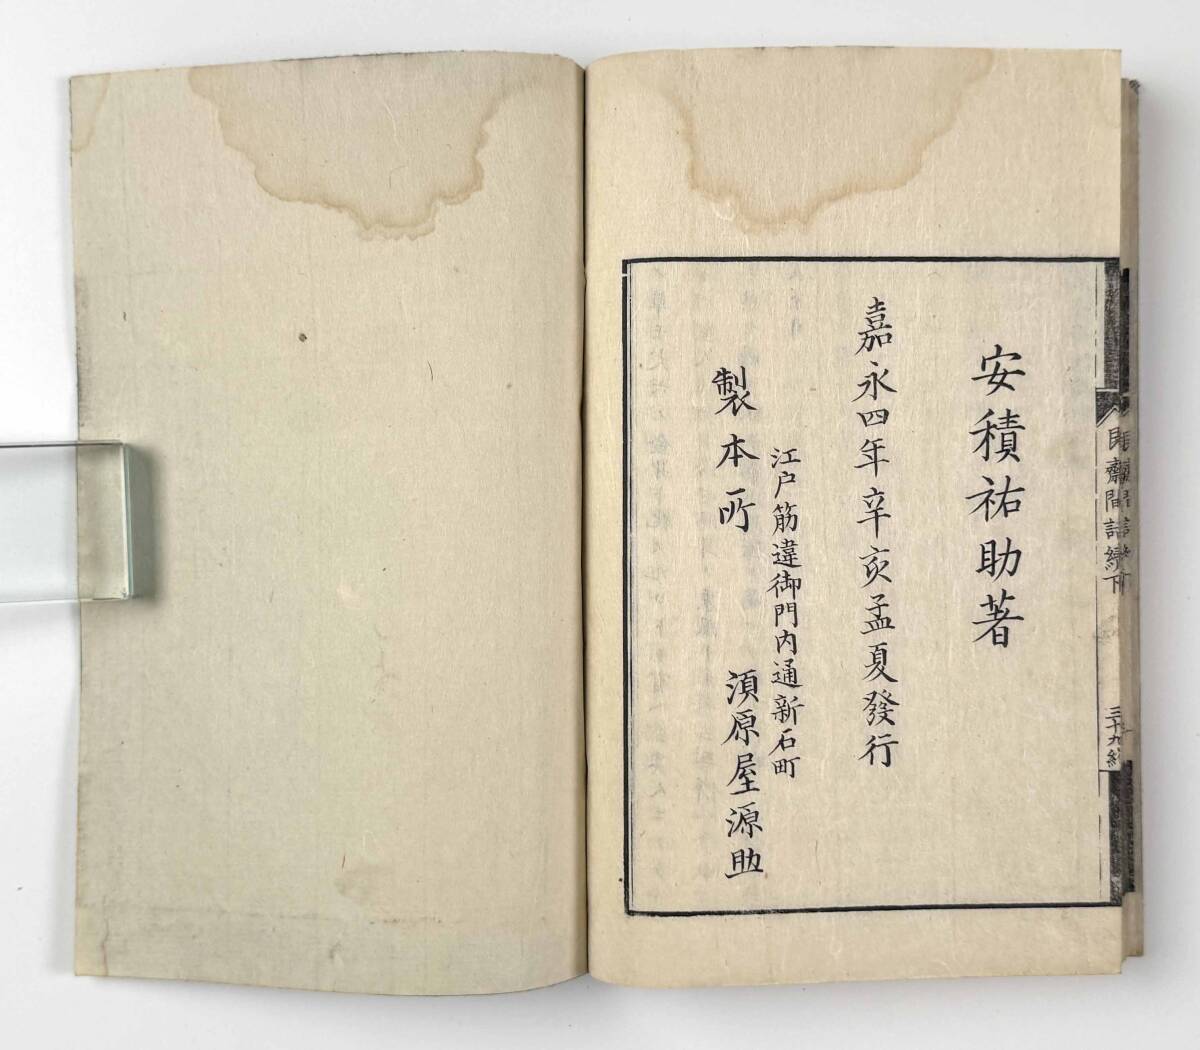 安積祐助著
嘉永四年辛亥孟夏發行
江戸筋違御門内通新石町
製本所 須原屋源助
艮齋間話續下
三十九終